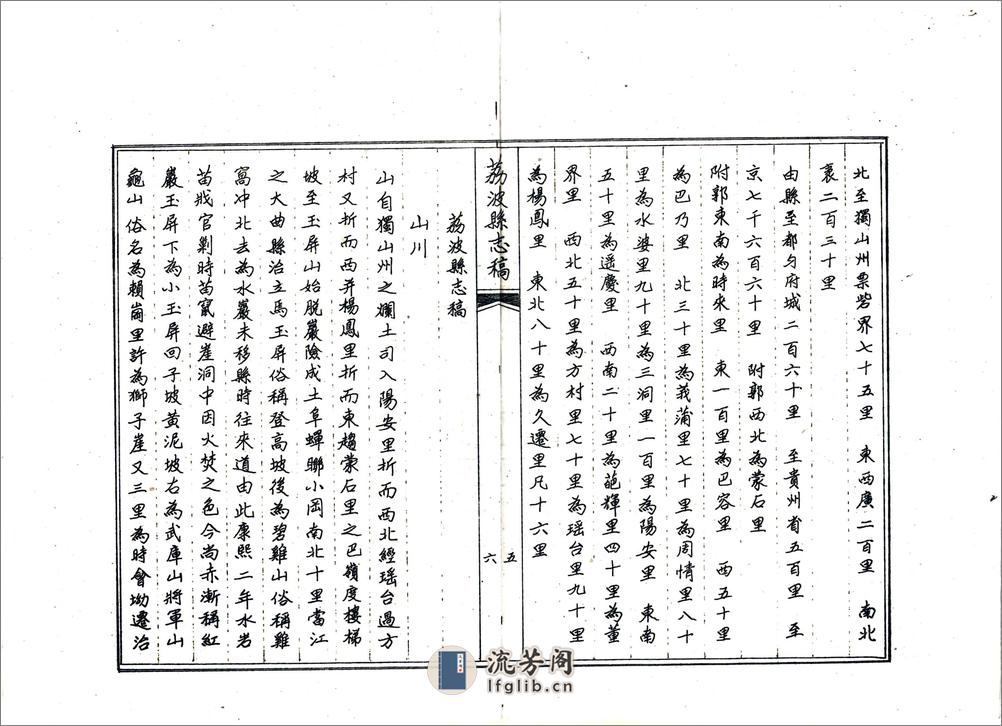 北至獨山州票砦界七十五里　東西廣二百里　南北
袤二百三十里
由縣至都勻府城二百六十里　至貴州省五百里　至
京七千六百六十里　附郭西北為蒙石里
附郭東南為時來里　東一百里為巴容里　西五十里
為巴乃里　北三十里為莪蒲里七十里為周情里八十
里為水婆里九十里為三洞里一百里為陽安里　東南
五十里為遥慶里　西南二十里為葩輝里四十里為董
界里　西北五十里為方村里七十里為瑶台里九十里
為楊鳳里　東北八十里為久遷里凡十六里
荔波縣志稿
五
六
荔波縣志稿
山川
山自獨山州之爛土司入陽安里折而西北經瑶台過方
村又折而西并楊鳳里折而東趨蒙石里之巴嶺度樓梯
坡至玉屏山始脱巖險成土阜蟬聯小岡南北十里當江
之大曲縣治立馬玉屏俗稱登高坡後為碧雞山俗稱雞
窩冲北去為水巖未移縣時往來道由此康熙二年水岩
苗戕官剿時苗竄避崖洞中因火焚之色今尚赤漸稱紅
巖玉屏下為小玉屏回子坡黄泥坡右為武庫山將軍山
龜山俗名為賴崗里許為獅子崖又三里為時會坳遷治
流芳阁
lfglib.cn